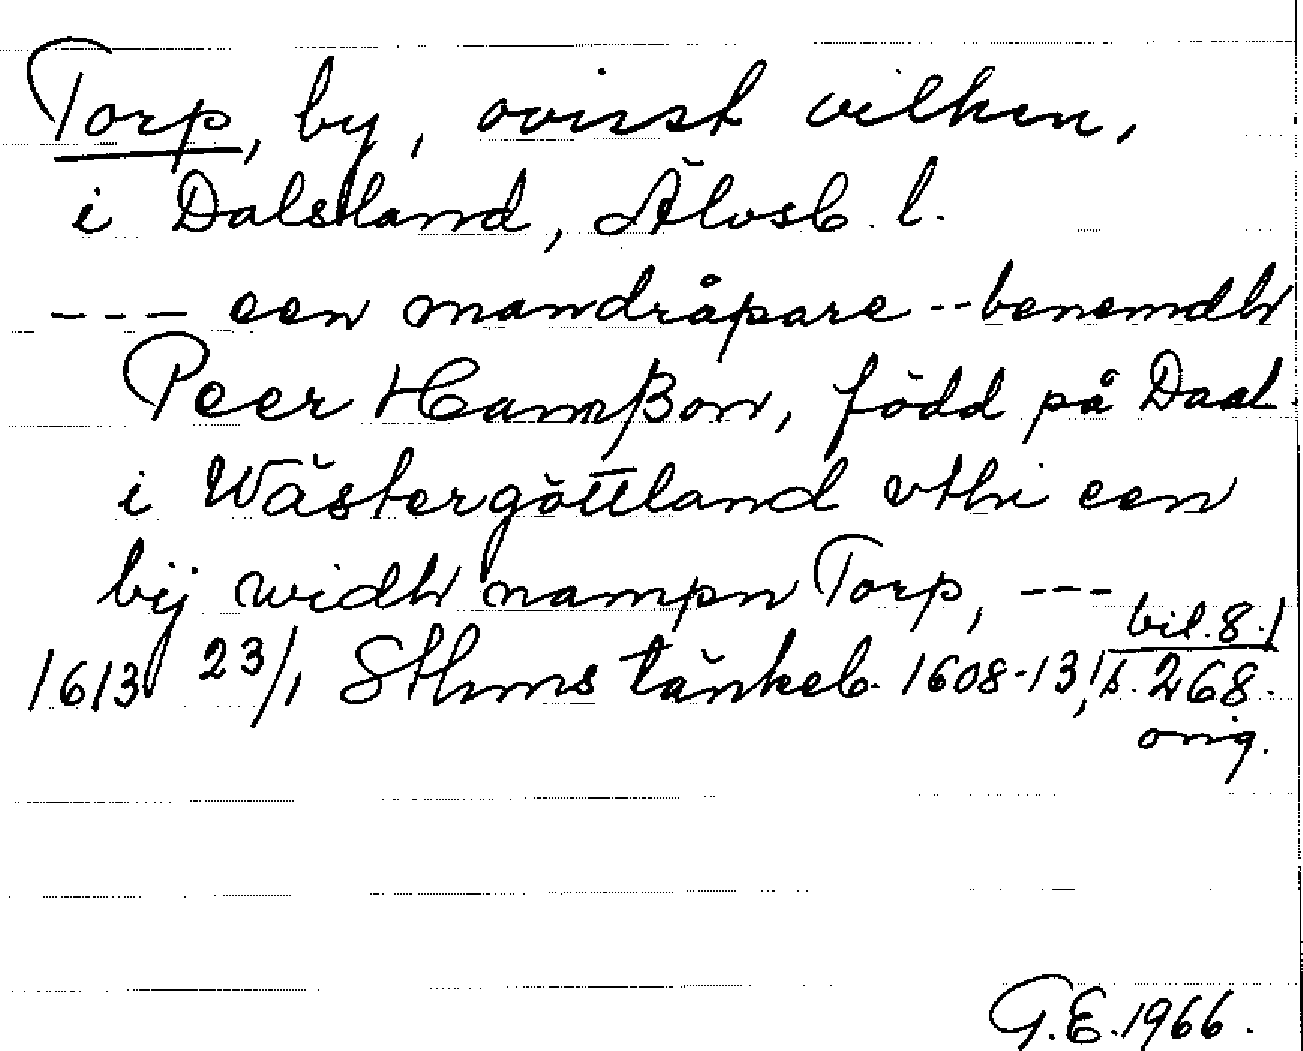 Torp, by, ovisst vilken,
i Dalsland, Älvsb. l.
--- een mandråpare -- benemdh
Peer Hamßon, född på Daal
i Wästergöttland vthi een
bij widh nampn Torp, ---
bil. 8.
1613 23/1 Sthms tänkeb. 1608-13, s. 268.
orig.
G.E. 1966.